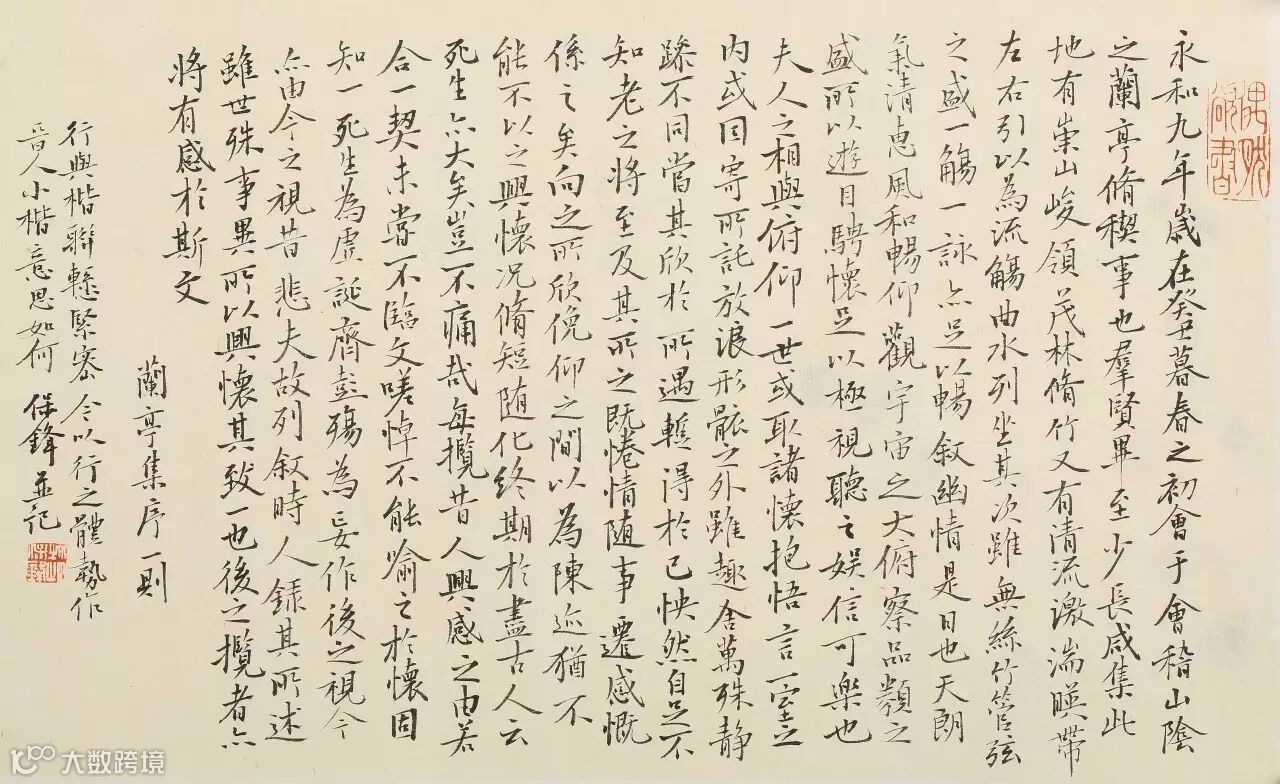 永和九年歲在癸丑暮春之初會于會稽山陰
之蘭亭脩稧事也羣賢畢至少長咸集此
地有崇山峻領茂林脩竹又有清流激湍暎帶
左右引以為流觴曲水列坐其次雖無絲竹管弦
之盛一觴一詠亦足以暢叙幽情是日也天朗
氣清惠風和暢仰觀宇宙之大俯察品類之
盛所以遊目騁懷足以極視聽之娛信可樂也
夫人之相與俯仰一世或取諸懷抱悟言一室之
內或因寄所託放浪形骸之外雖趣舍萬殊静
躁不同當其欣於所遇蹔得於己怏然自足不
知老之將至及其所之既惓情随事遷感慨
係之矣向之所欣俛仰之間以為陳迹猶不
能不以之興懷況脩短随化終期於盡古人云
死生亦大矣豈不痛哉每攬昔人興感之由若
合一契未嘗不臨文嗟悼不能喻之於懷固
知一死生為虛誕齊彭殤為妄作後之視今
亦由今之視昔悲夫故列叙時人錄其所述
雖世殊事異所以興懷其致一也後之攬者亦
將有感於斯文
蘭亭集序一則
行與楷聯懸緊密今以行之體勢作
晉人小楷意思如何 保鋒並記
大数跨境